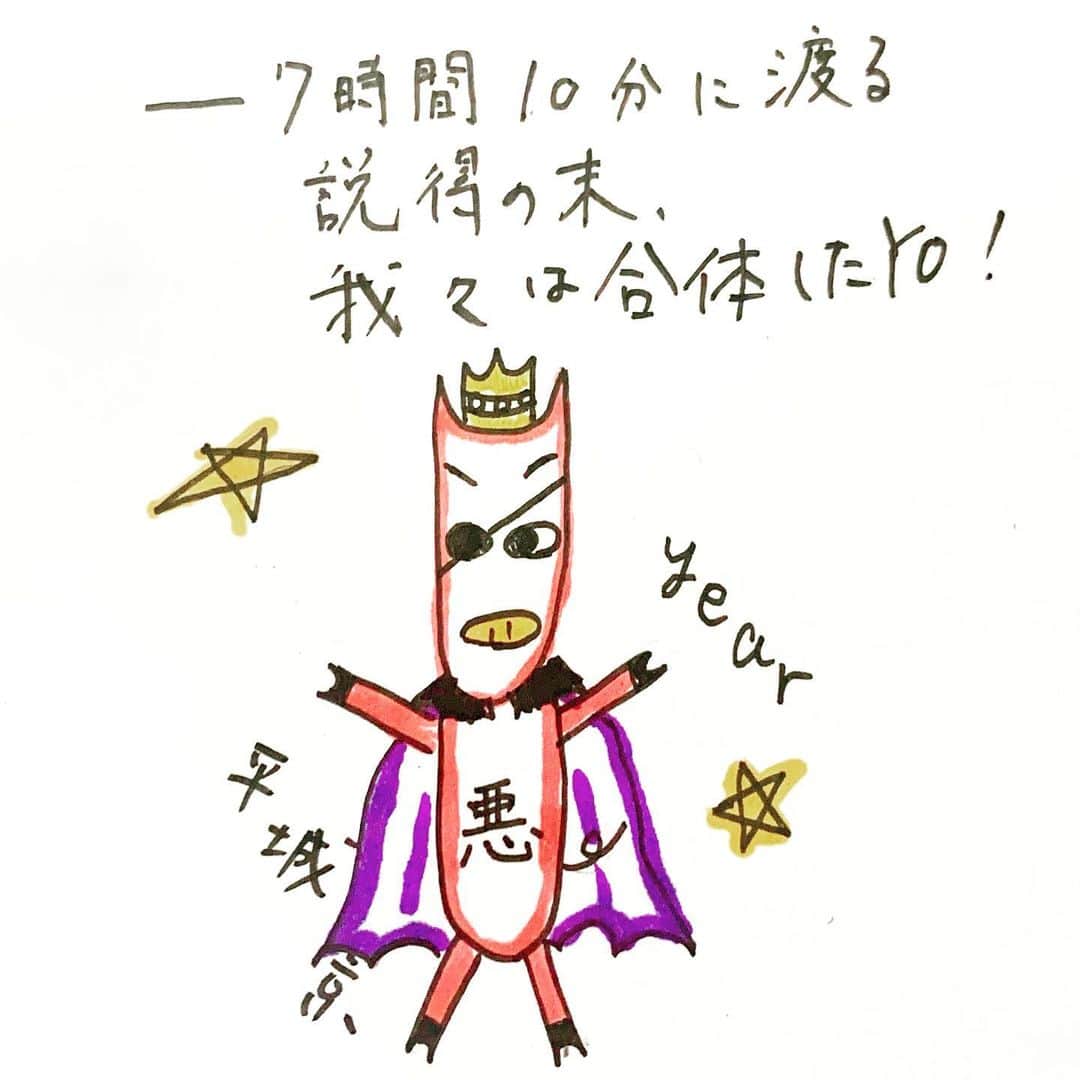 ―7時間10分に渡る
説得の末、
我々は合体したYO!
year
悪
平城京